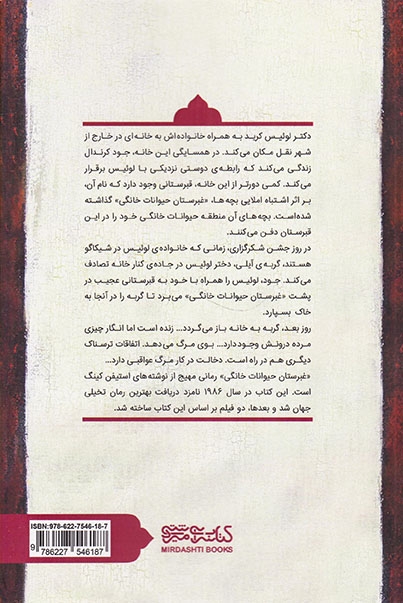 دکتر لوئیس کرید به همراه خانواده‌اش به خانه‌ای در خارج از
شهر نقل مکان می‌کند. در همسایگی این خانه، جود کرندال
زندگی می‌کند که رابطه‌ی دوستی نزدیکی با لوئیس برقرار
می‌کند. کمی دورتر از این خانه، قبرستانی وجود دارد که نام آن،
بر اثر اشتباه املایی بچه‌ها، «غبرستان حیوانات خانگی» گذاشته
شده‌است. بچه‌های آن منطقه حیوانات خانگی خود را در این
قبرستان دفن می‌کنند.
در روز جشن شکرگزاری، زمانی که خانواده‌ی لوئیس در شیکاگو
هستند، گربه‌ی آیلی، دختر لوئیس در جاده‌ی کنار خانه تصادف
می‌کند. جود، لوئیس را همراه با خود به قبرستانی عجیب در
پشت «غبرستان حیوانات خانگی» می‌برد تا گربه را در آنجا به
خاک بسپارد.
روز بعد، گربه به خانه باز می‌گردد... زنده است اما انگار چیزی
مرده درونش وجود دارد... بوی مرگ می‌دهد. اتفاقات ترسناک
دیگری هم در راه است. دخالت در کار مرگ عواقبی دارد...
«غبرستان حیوانات خانگی» رمانی مهیج از نوشته‌های استیفن کینگ
است. این کتاب در سال ۱۹۸۶ نامزد دریافت بهترین رمان تخیلی
جهان شد و بعدها، دو فیلم بر اساس این کتاب ساخته شد.
ISBN: 978-622-7546-18-7
9 786227 546187
کتابسرای میردشتی
MIRDASHTI BOOKS